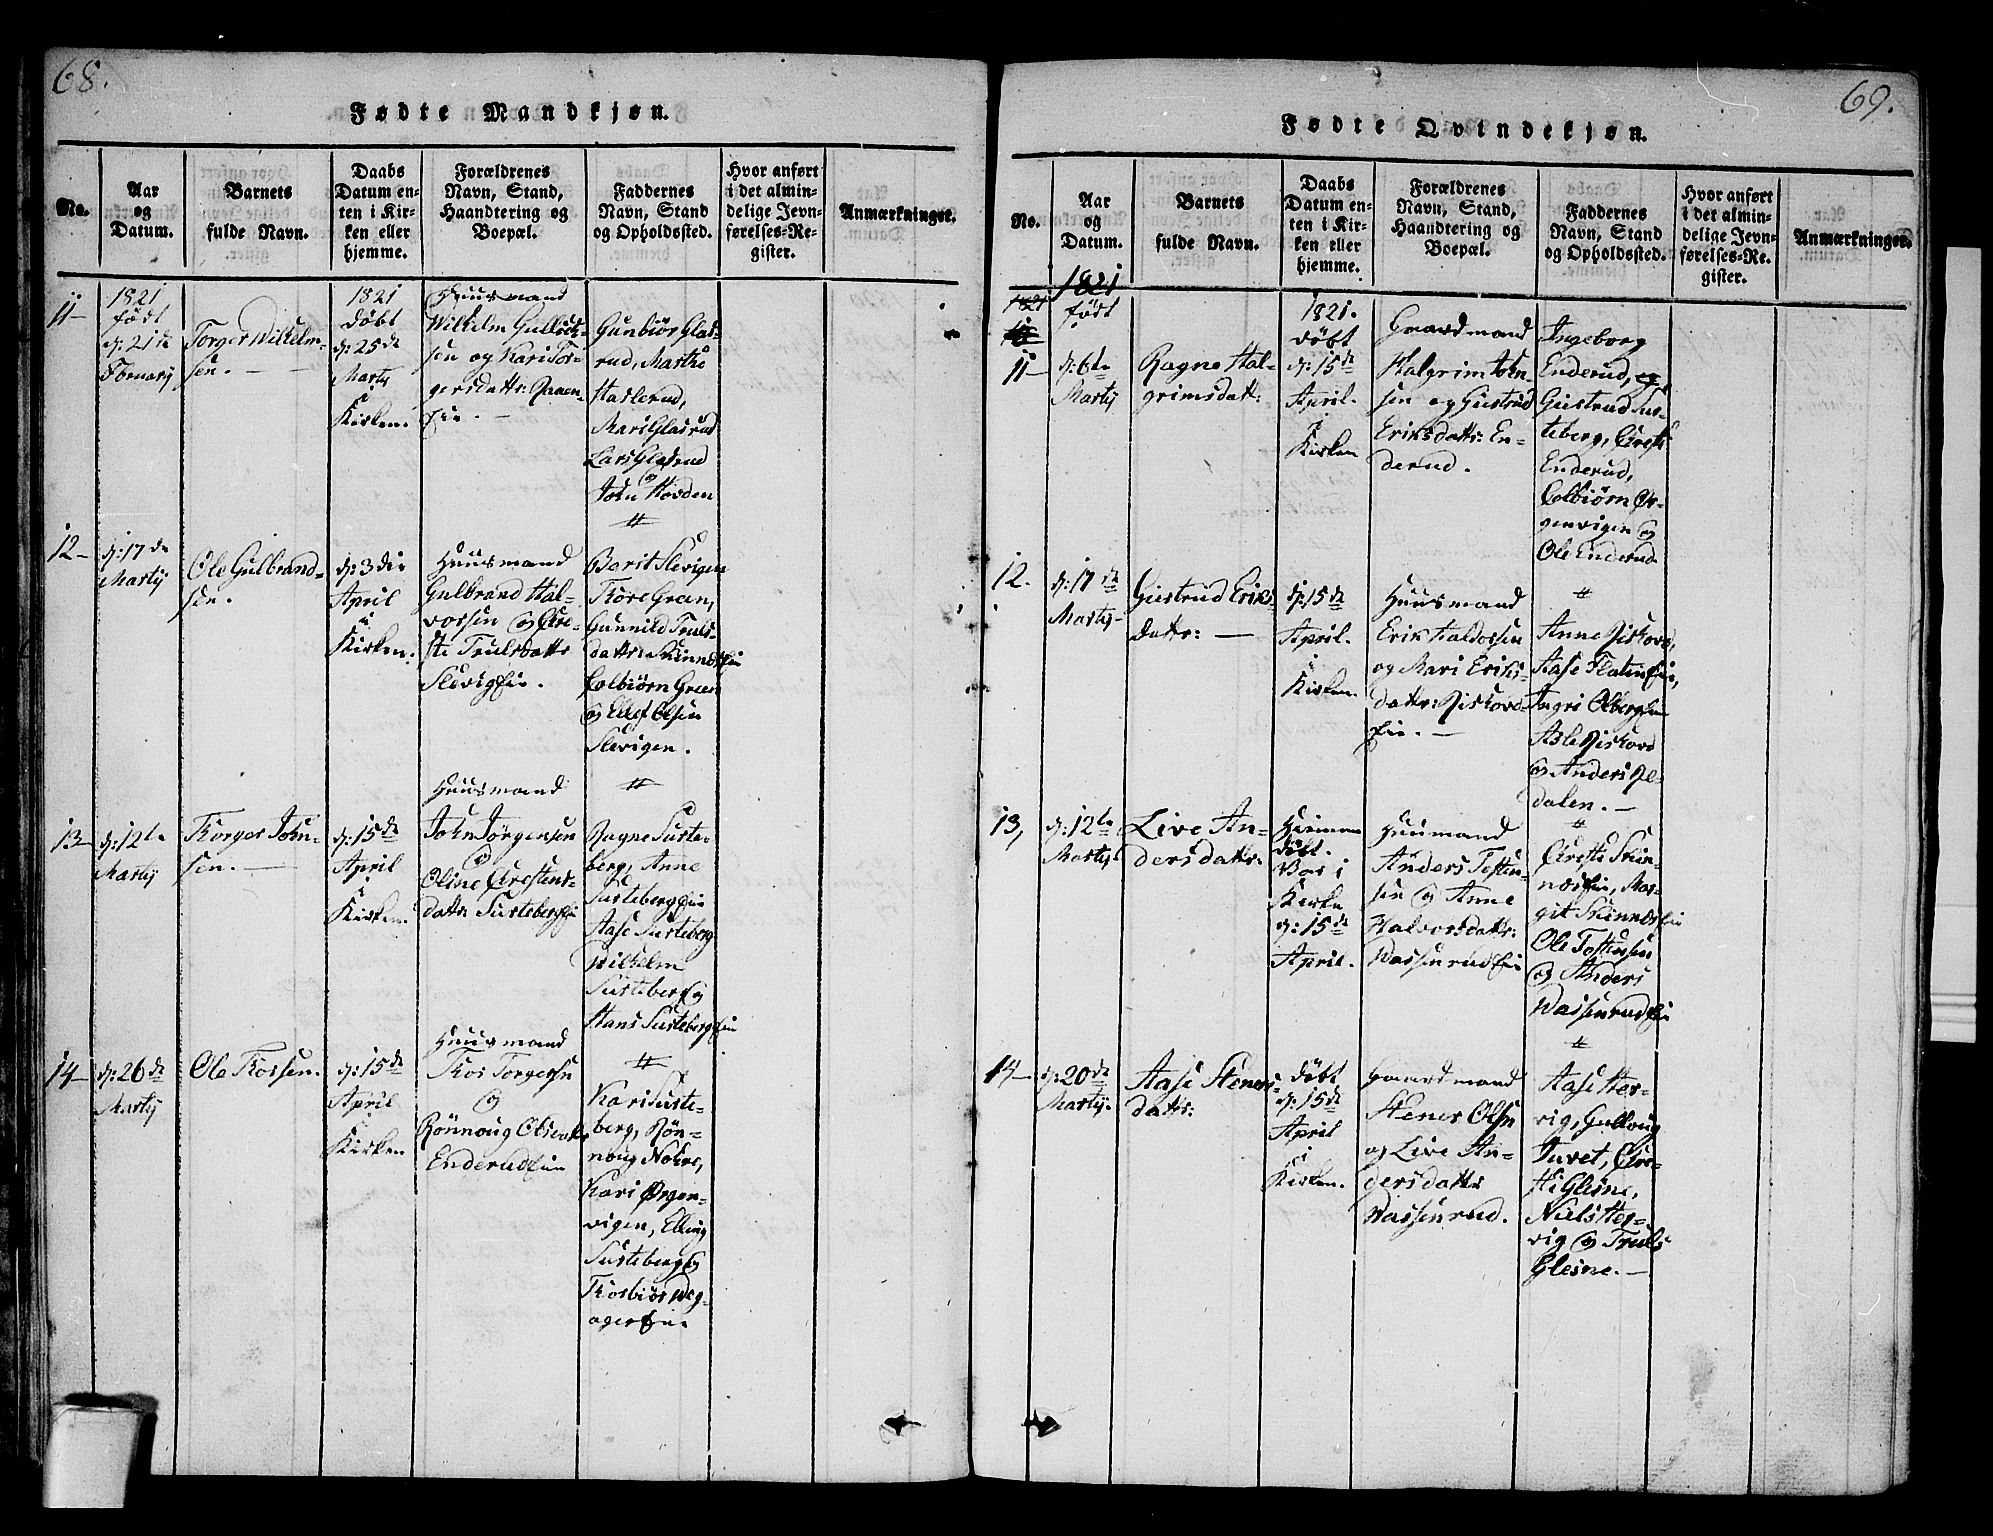 68.
Fødte Mandkjøn.
No.
Aar
og
Datum.
Barnets
fulde Navn.
Daabs
Datum en-
ten i Kir-
ken eller
hjemme.
Forældrenes
Navn, Stand,
Haandtering og
Boepæl.
Faddernes
Navn, Stand
og Opholdssted.
Hvor anført
i det almin-
delige Jevn-
førelses-Re-
gister.
Anmærkninger.
11-
1821
født
d: 21de
Torger Wilhelm-
sen. —
1821
døbt
d: 25de
Martij
i
Kirken.
Huusmand
Wilhelm Gullich-
sen og Kari Tor-
gersdattr:
eie. -
Gunbiør Glas-
rud, Marthe
Haslerud,
Mari Glasrud
Lars Glasrud
og
John Hovden
12-
d: 17de
Martij
Ole Gulbrand-
sen.
d: 3die
April
i
Kirken.
Huusmand
Gulbrand Hal-
vorsen og Kir-
sti Trulsdattr
Slevigeie.
Berit Slevigen
Tore Green,
Gunnild Truls-
dattr: Skinneseie
Colbiørn Green
og Ellef Olsen
Slevigen.
13-
d: 12te
Martij
Thorger John-
sen. —
d: 15de
April
i
Kirken.
Huusmand
John Jørgensen
og
Oline Christens-
dattr Sustebergeie
Ragne Suste-
berg, Anne
Sustebergeie
Aase Susteberg
Wilhelm
Susteberg og
Hans Sustebergeie
14-
d: 26de
Martij
Ole Thorsen.
d: 15de
April
i
Kirken
Huusmand
Thor Torgersen
og
Rønnoug
Enderudeie
Kari Suste-
berg, Røn-
noug Nohre,
Kari Ørgen-
vigen, Elling
Susteberg og
Thorbiør Weg-
agereie.
69.
Fødte Qvindekjøn.
No.
Aar
og
Datum.
Barnets
fulde Navn.
Daabs
Datum en-
ten i Kir-
ken eller
hjemme.
Forældrenes
Navn, Stand,
Haandtering og
Boepæl.
Faddernes
Navn, Stand
og Opholdssted.
Hvor anført
i det almin-
delige Jevn-
førelses-Re-
gister.
Anmærkninger.
1821
født
11-
d: 6te
Martij
Ragne Hal-
grimsdatt:
1821.
døbt
d: 15de
April.
i
Kirken
Gaardmand
Halgrim
sen og Giertrud
Eriksdattr: En-
derud.
Ingeborg
Enderud,
Giertrud Sus-
teberg, Kirsti
Enderud,
Colbiørn Ør-
genvigen og
Ole Enderud
12.
d: 17de
Martij-
Giertrud Eriks-
dattr: —
d: 15de
April.
i
Kirken.
Huusmand
Erik Haldorsen
og Mari Eriks-
dattr:
eie. -
Anne
Aase Flatineie,
Ingri Olbergeie
og Anders
dalen. —
13,
d: 12te
Martij
Live An-
dersdattr:
Hiemme
døbt.
Var i
Kirke
d: 15de
April.
Huusmand
Anders Tosten-
sen og Anne
Halvorsdattr:
Wassenrudeie
Kirsti Skin-
neseie, Mar-
git Skinneseie
Ole Tostensen
og Anders
Wassenrudeie
14-
d: 20de
Martij.
Aase Steners-
dattr:
døbt
d: 15de
April
i
Kirken.
Gaardmand
Stener Olsen
og Live An-
dersdattr
Wassenrud.
Aase Her-
vig, Gulloug
Juvet, Kir-
sti Glesne,
Niels Her-
vig og Truls
Glesne. —